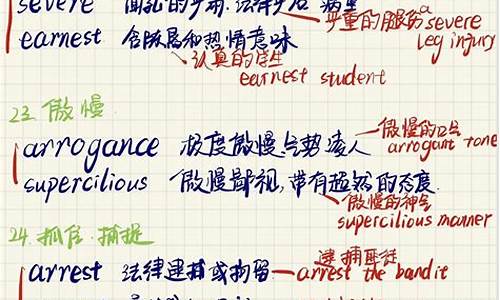 severe
严重的腿伤 a severe
leg injury
earnest 含既居和热情意味
认真的学生
earnest student
23. 傲慢
arrogance 极度傲慢.气势凌人
傲慢的口气
arrogant tone
supercilious 傲慢鄙视,带有超然的态度.
傲慢的神气
supercilious manner
24. 抓住.捕捉
arrest 法律逮捕或拘留
逮捕匪徒
arrest the bandit